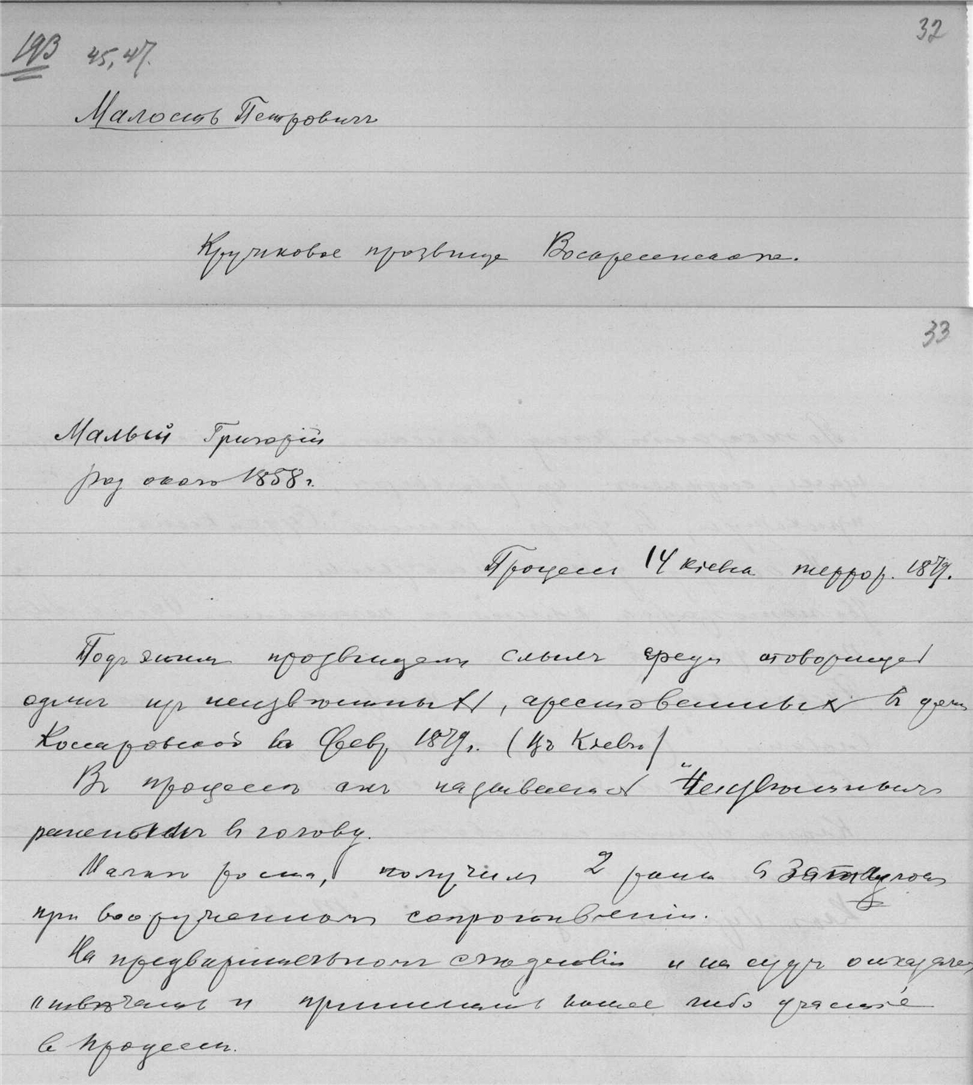 32
193 45, 47.
Малость Петровичъ
Кружковое прозвище Воскресенскаго.
33
Малый Григорій
род около 1858 г.
Процессъ 14 кіевск террор. 1879 г.
Подъ этимъ прозвищемъ слылъ среди товарищей
одинъ изъ неизвѣстныхъ, арестованныхъ въ домѣ
Коссаровской въ Февр. 1879 г. (Въ Кіевѣ)
Въ процессѣ онъ называется "Неизвѣстнымъ
раненымъ въ голову.
Малаго роста, получилъ 2 раны в затылокъ
при вооруженномъ сопротивленіи.
На предварительномъ слѣдствіи и на судѣ отказался
отвѣчать и принимать какое либо участіе
в процессѣ.